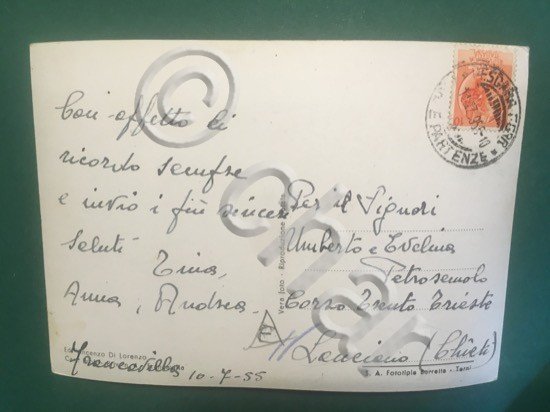 Con affetto vi
ricordo sempre
e invio i più sinceri
saluti
Tina,
Anna, Andrea
Francavilla 10-7-55
Per il Signori
Umberto e Evelina
Petrosemolo
Corso Trento Trieste
Lanciano (Chieti)
Vera foto - Riproduzione
Vincenzo Di Lorenzo
S. A. Fototipie Barretta - Terni
PESCARA FERR
E PARTENZE
©
char